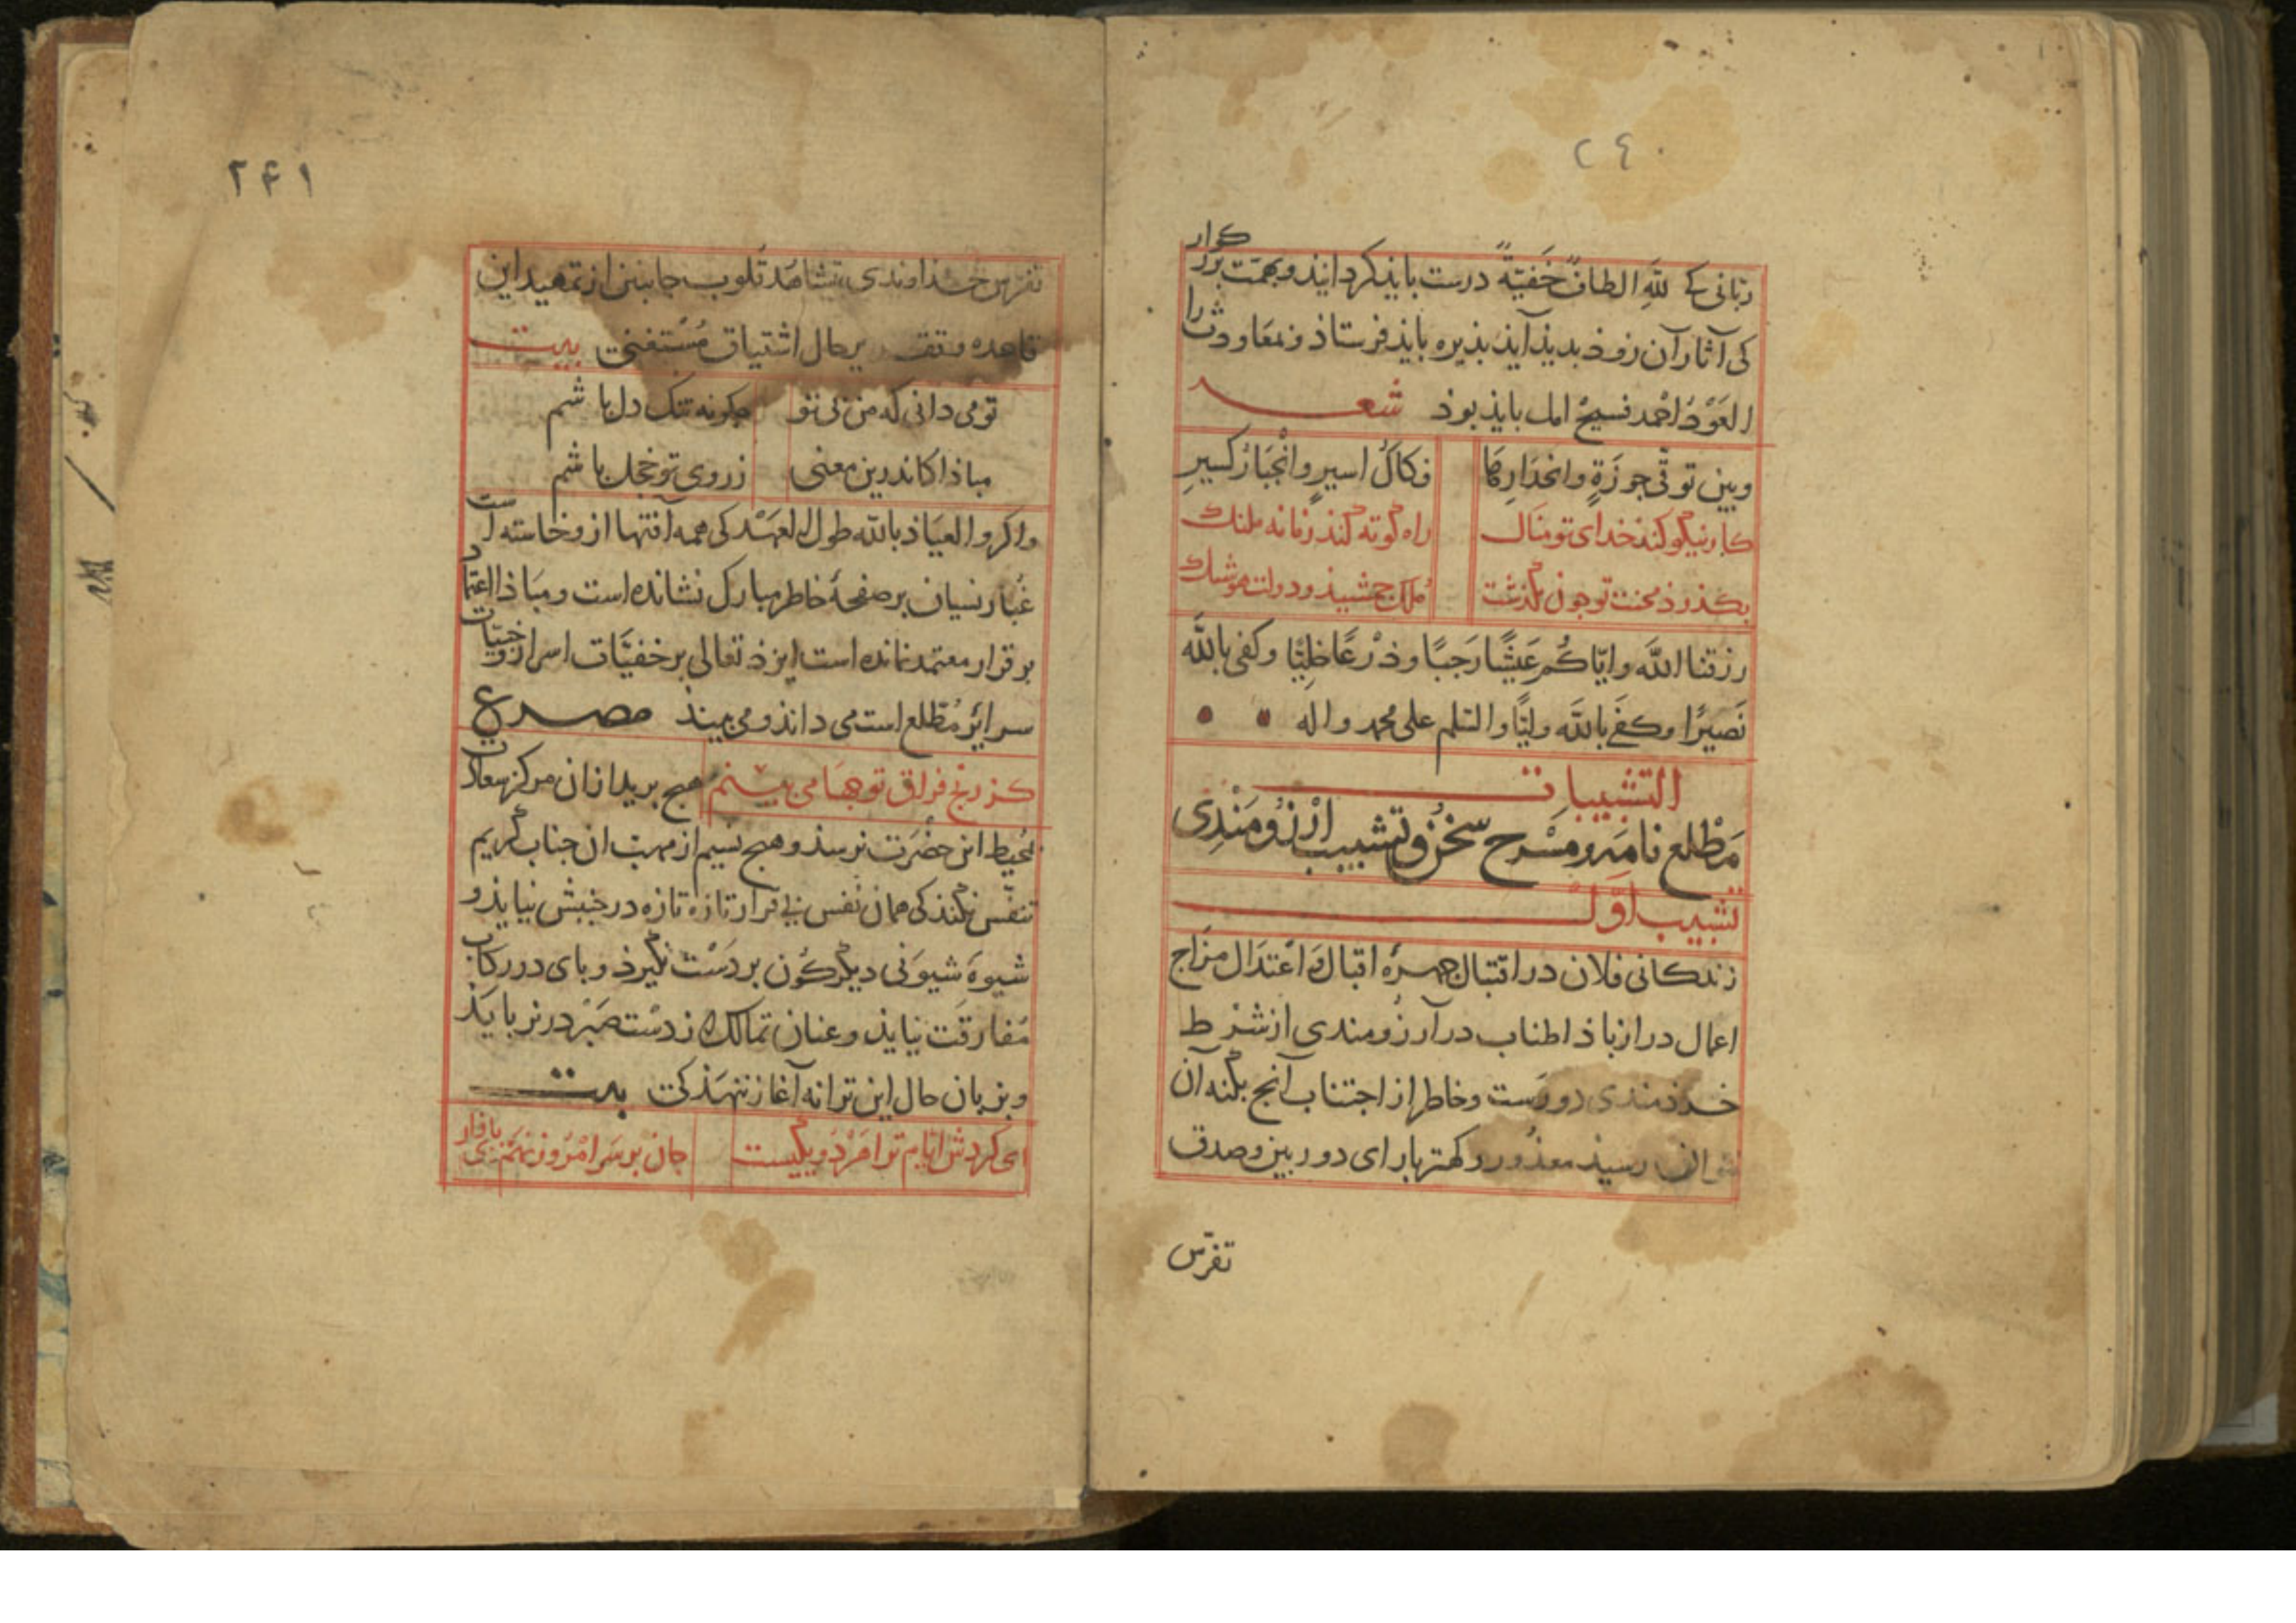 ٢٤٠
ربّانی که للّه الطافٌ خَفیّةٌ درست بایذ کردانیذ و بهمّت بزر کوار
کی آثار آن زوذ بدیذ آیذ بذیره بایذ فرستاذ و معاودت را
العَوْدُ احمد فسیح امل بایذ بوذ شعــر
وبین توقّی جوزَةٍ وانحدارِها
فکاکُ اسیرٍ وانْجبَارُ کسیرِ
کار نیکو کند خدای تو منال
راه کوته کند زمانه ملنک
بکذرذ محنت تو جون بکذشت
ملک جمشیذ و دولت هوشنک
رزقنا الله وایّاکُم عَیشًا رَحبًا وذرْعًا خلیًّا وکفی بالله
نَصیرًا وکفی بالله ولیًّا والسّلم علی محمد واله
التشبیبات
مَطْلع نامه و مَسْرح سخن و تشبیب ارْزومَنْدِی
تشبیب اوّل
زندکانی فلان در اقتبال جهرهٔ اقبال و اعْتدَال مزاج
اعمال دراز باذ اطناب در آرزُومندی از شَرْط
خردمندی دورست وخاطر از اجتناب آنج بکنه آن
نتوان رسیذ معذُور و کهتر بارای دوربین وصدق
تفرّس
٢۴١
تفرّس خذاوندی بتشاهُد قلوب جانبین از تمهید این
قاعده بحال اشتیاق مُسْتغنیت بیت
تو می دانی که من بی تو
جکونه تنک دل باشم
مباذا کاندرین معنی
ز روی تو خجل باشم
واکر والعیَاذ بالله طول العهْد کی همه آفتها ازو خاسته است
غُبار نسیان بر صفحهٔ خاطر مبارک نشانده است ومبَاذا اعتماد
برقرار معتمد نمانده است ایزذ تعالی بر خفیَّات اسرار و خبیّات
سرائرمُطّلع است می داند و می بیند مصــرع
کز رنج فراق تو جها می بینم
هیج برید از ان مرکز سعادت
بمحیط این حضْرَت نرسذ و هیج نسیم از مهبّ ان جناب کریم
تنفّس نکنذ کی همان نفس بی قرار تازه تازه در جنبش نیایذ و
شیوهٔ شیوَنی دیکرکوُن بر دَسْت نکیرذ و بای در رکاب
مُفارقَت نیایذ و عنان تمالک از دسْت صَبْر در نربایَذ
و بزبان حال این ترانه آغاز ننهَذ کی بیت
ای کردش ایّام ترا مَرْدُویکیست
جان بر سَر امْرُوز نهَم